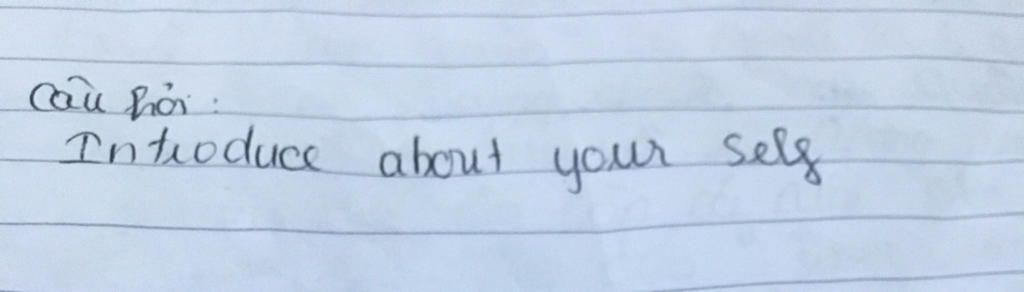 Câu hỏi:
Introduce about your self